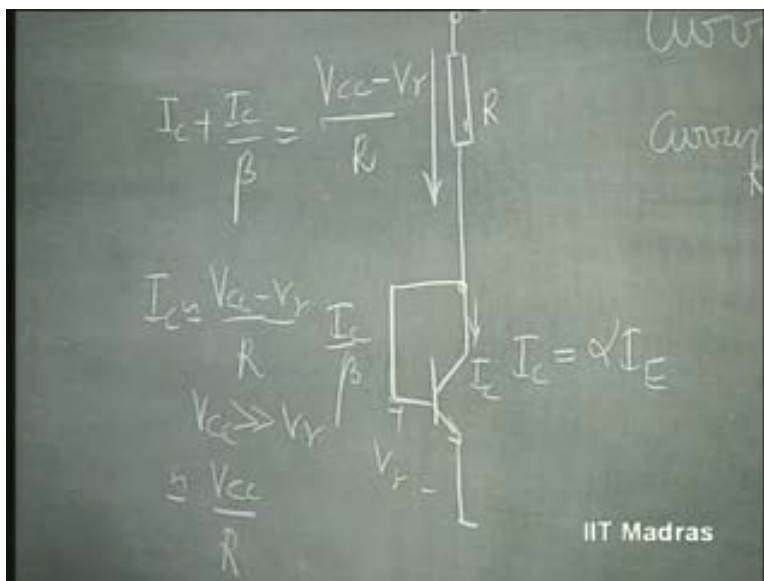 I_C + I_C/β = (V_CC − V_γ)/R
R
I_C ≃ (V_CC − V_γ)/R
I_C/β
I_C
I_C = αI_E
V_CC ≫ V_γ
+
V_γ −
≃ V_CC/R
IIT Madras